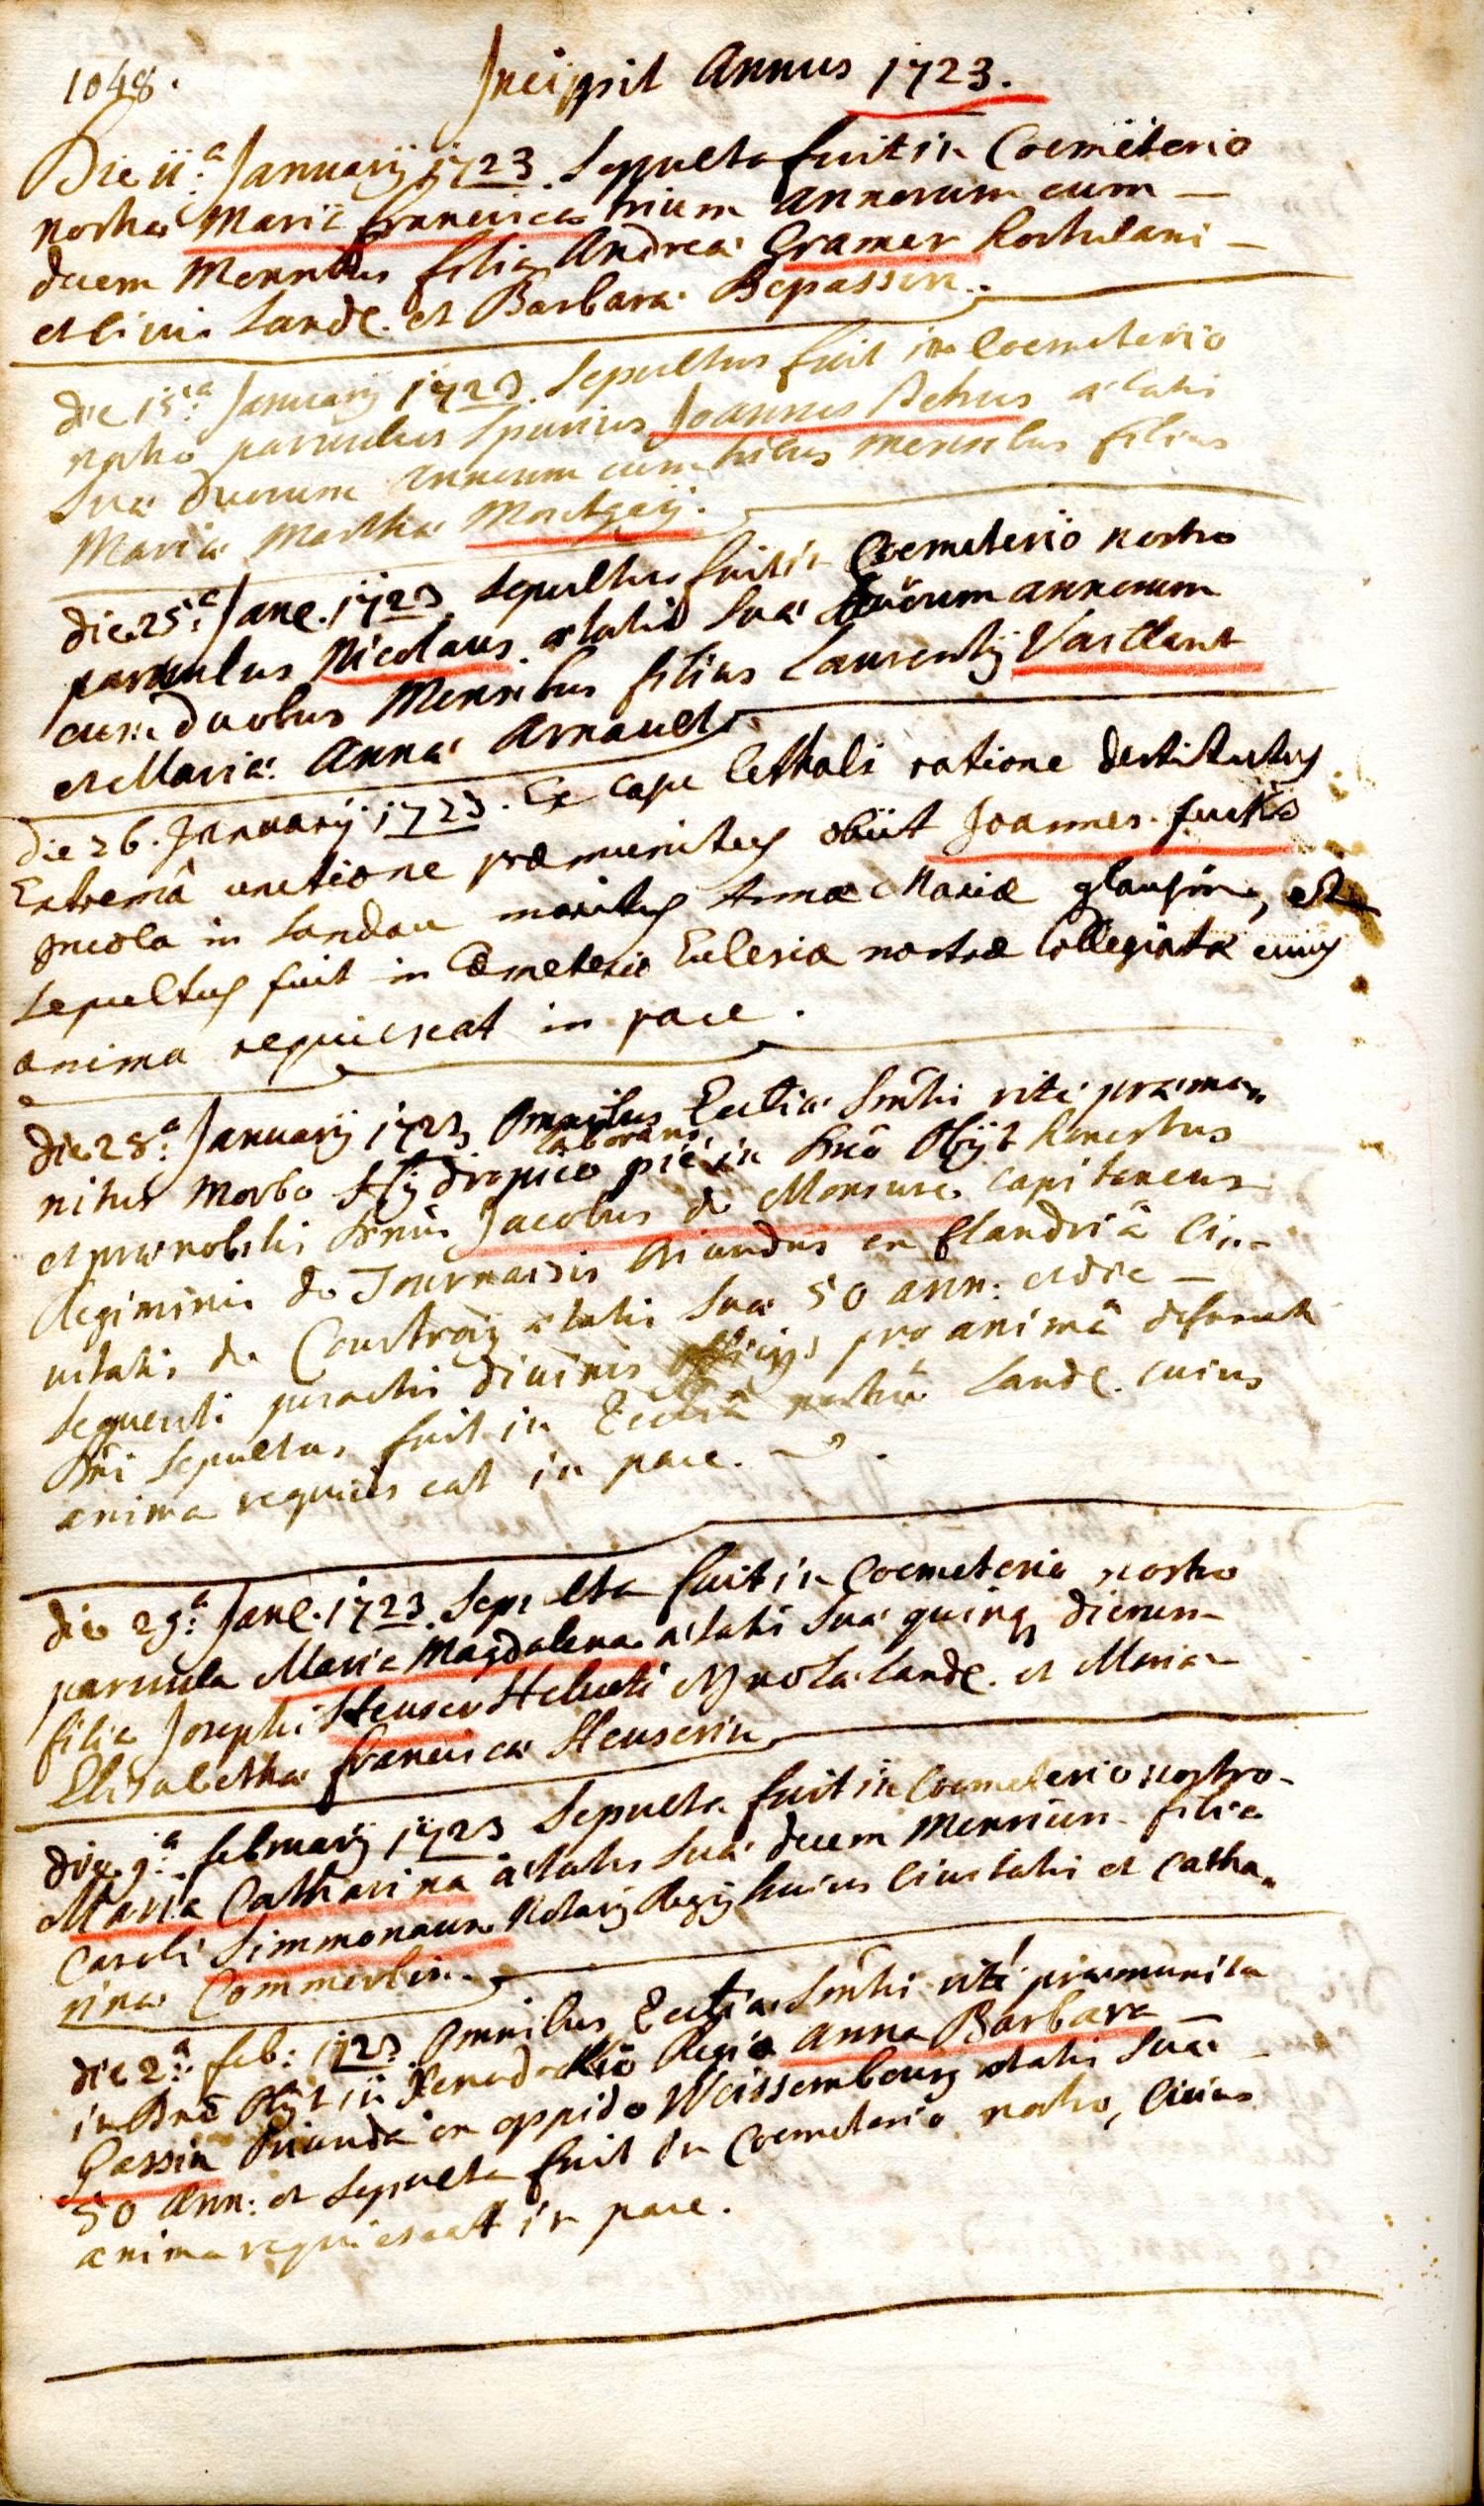 1048.
Incipit Annus 1723.
Die ii.a Januarij 1723. Sepulta fuit in Coemeterio
nostro Maria Francisca trium annorum cum
decem Mensibus filia Andreae Gramer hortulani
et civis Landc. et Barbarae Bepassin.
die 15.a Januarij 1723. Sepultus fuit in Coemeterio
nostro parvulus Spurius Joannes Petrus aetatis
Suae duorum annorum cum tribus mensibus filius
Mariae Marthae
die 25.a Janc. 1723 Sepultus fuit in Coemeterio nostro
parvulus Nicolaus aetatis Suae duorum annorum
cum duobus Mensibus filius Laurentij Vaillant
et Mariae Annae Arnault
die 26. Januarij 1723. Ex casu lethali ratione destitutus
Extremâ unctione praemunitus obiit Joannes fuchs
Incola in Landau maritus Annae Mariae glausin, et
Sepultus fuit in Cemeterio Eclesiae nostrae Collegiatae cuius
anima requiescat in pace.
die 28.a Januarij 1723 Omnibus Ecclia Smtis rite praemu„
nitus Morbo Hydropico laborans, pie in Dno Obijt honestus
et praenobilis Dnus Jacobus de Monsure capitaneus
Regiminis de Tournaisis Oriundus ex Flandriâ Ci„
vitatis de Courtroij aetatis Suae 50 ann: et die
Sequenti peractis divinis officijs pro animâ defuncti
Dni Sepultus fuit in Ecclia nostrâ Landc. cuius
anima requiescat in pace.
die 29.a Janc. 1723 Sepulta fuit in Coemeterio nostro
parvula Maria Magdalena aetatis Suae quinq dierum
filia Josephi Heuser Helveti Incolae Landc. et Mariae
Elisabethae Franciscae Heuserin
die 1.a februarij 1723 Sepulta fuit in Coemeterio nostro
Maria Catharina aetatis Suae decem Mensium filia
Caroli Simmonaire Notarij Regij huius Civitatis et Catha„
rinae Commerlin.
die 2.a feb: 1723 Omnibus Ecclia Smtis rité praemunita
in Dno Obijt in Xenodochio Regio Anna Barbara
Gassin Oriunda ex oppido Weissembourg aetatis Suae
50 Ann: et Sepulta fuit in Coemeterio nostro, Cuius
anima requiescat in pace.